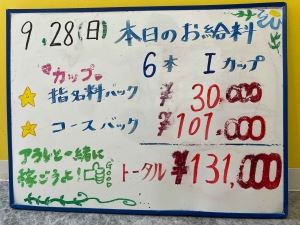 9.28(日) 本日のお給料
カップ 6本 Iカップ
指名料バック ¥30.000
コースバック ¥101.000
アラレと一緒に
稼ごうよ!
トータル ¥131,000